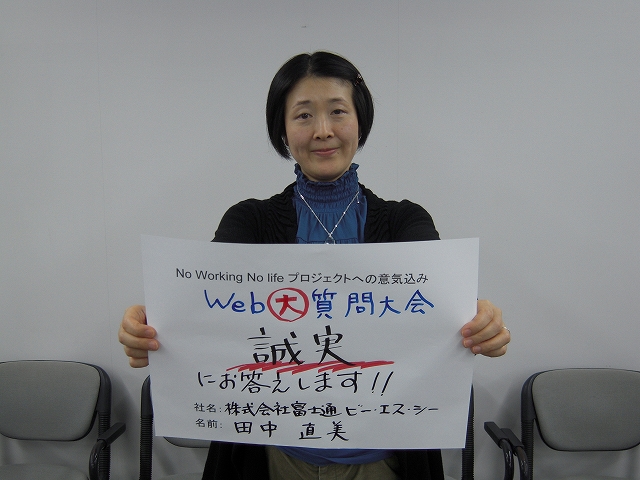 No Working No life プロジェクトへの意気込み
Web大質問大会
誠実
にお答えします!!
社名: 株式会社富士通ビー・エス・シー
名前: 田中 直美